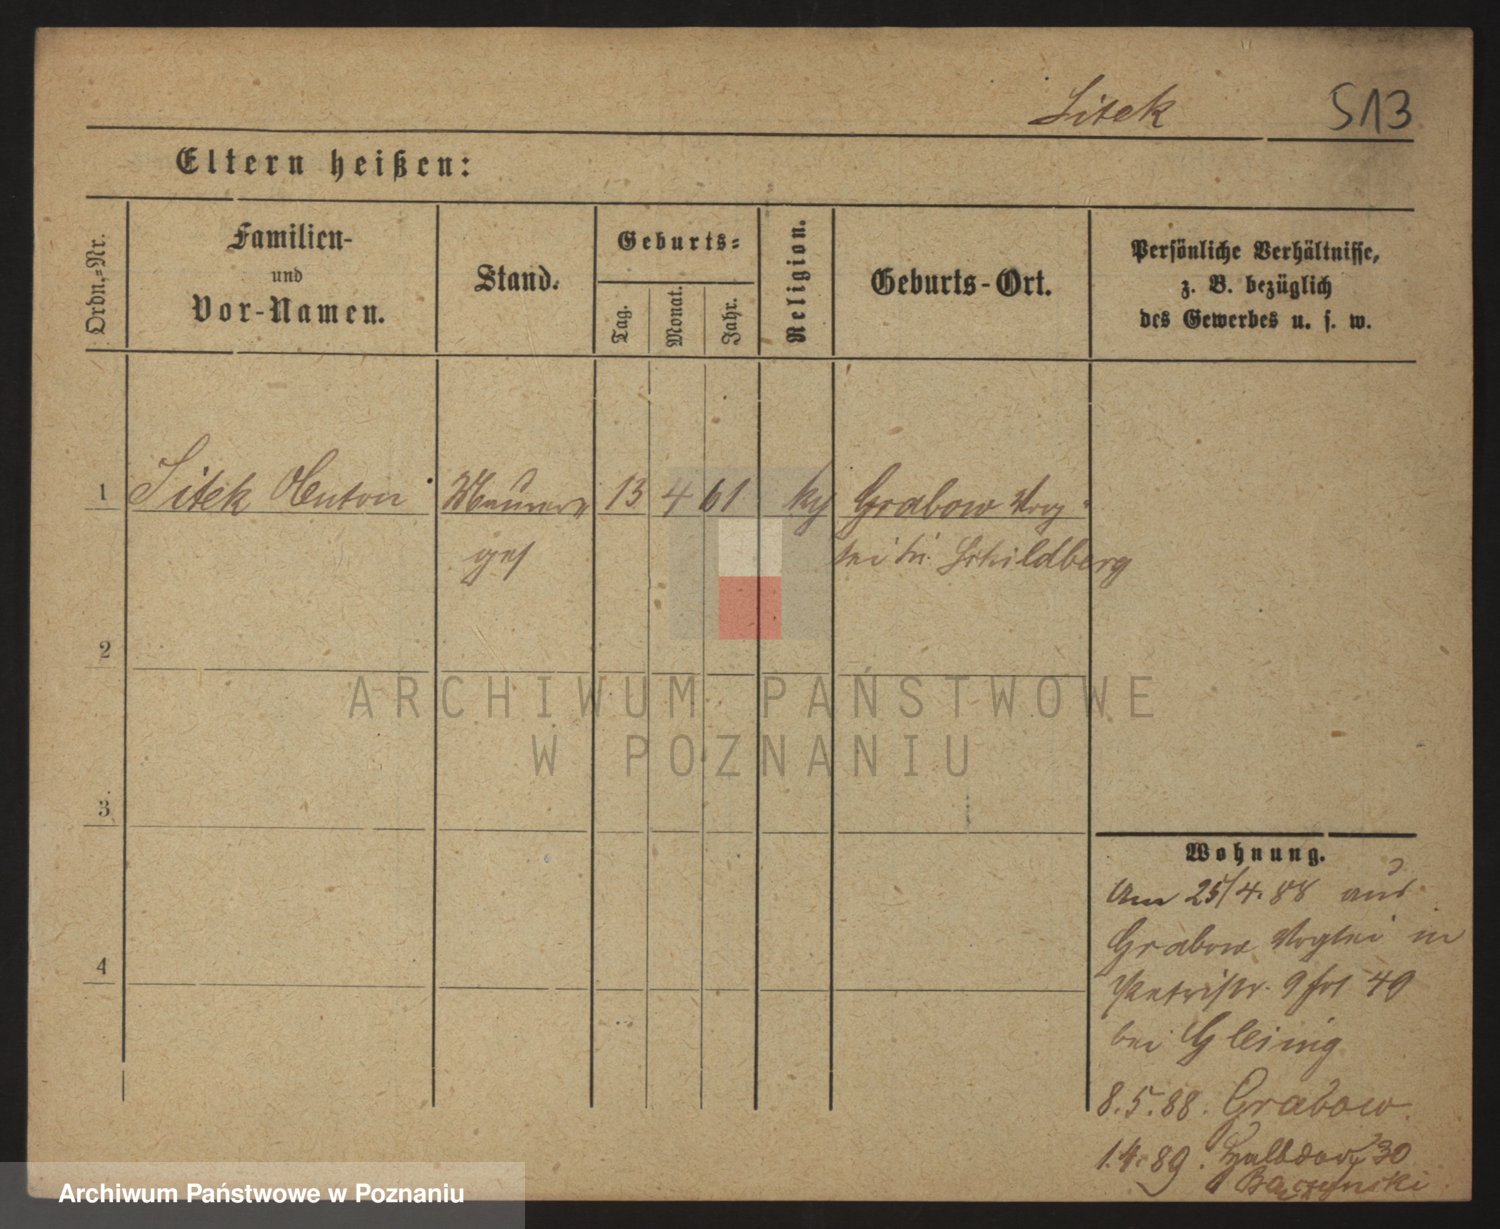 Sitek 513
Eltern heißen:
Ordn.=Nr.
Familien-
und
Vor-Namen.
Stand.
Geburts=
Tag.
Monat.
Jahr.
Religion.
Geburts-Ort.
Persönliche Verhältnisse,
z. B. bezüglich
des Gewerbes u. s. w.
1 Sitek Anton Maurer 13 4 61 Grabow Vog-
ges tei Kr. Schildberg
2
3
4
ARCHIWUM PAŃSTWOWE
W POZNANIU
Wohnung.
Am 25/4. 88 aus
Grabow Vogtei in
Petristr. 9 40
bei Gleinig
8.5.88. Grabow.
1.4.89. Halbdorf 30
Baczynski
Archiwum Państwowe w Poznaniu